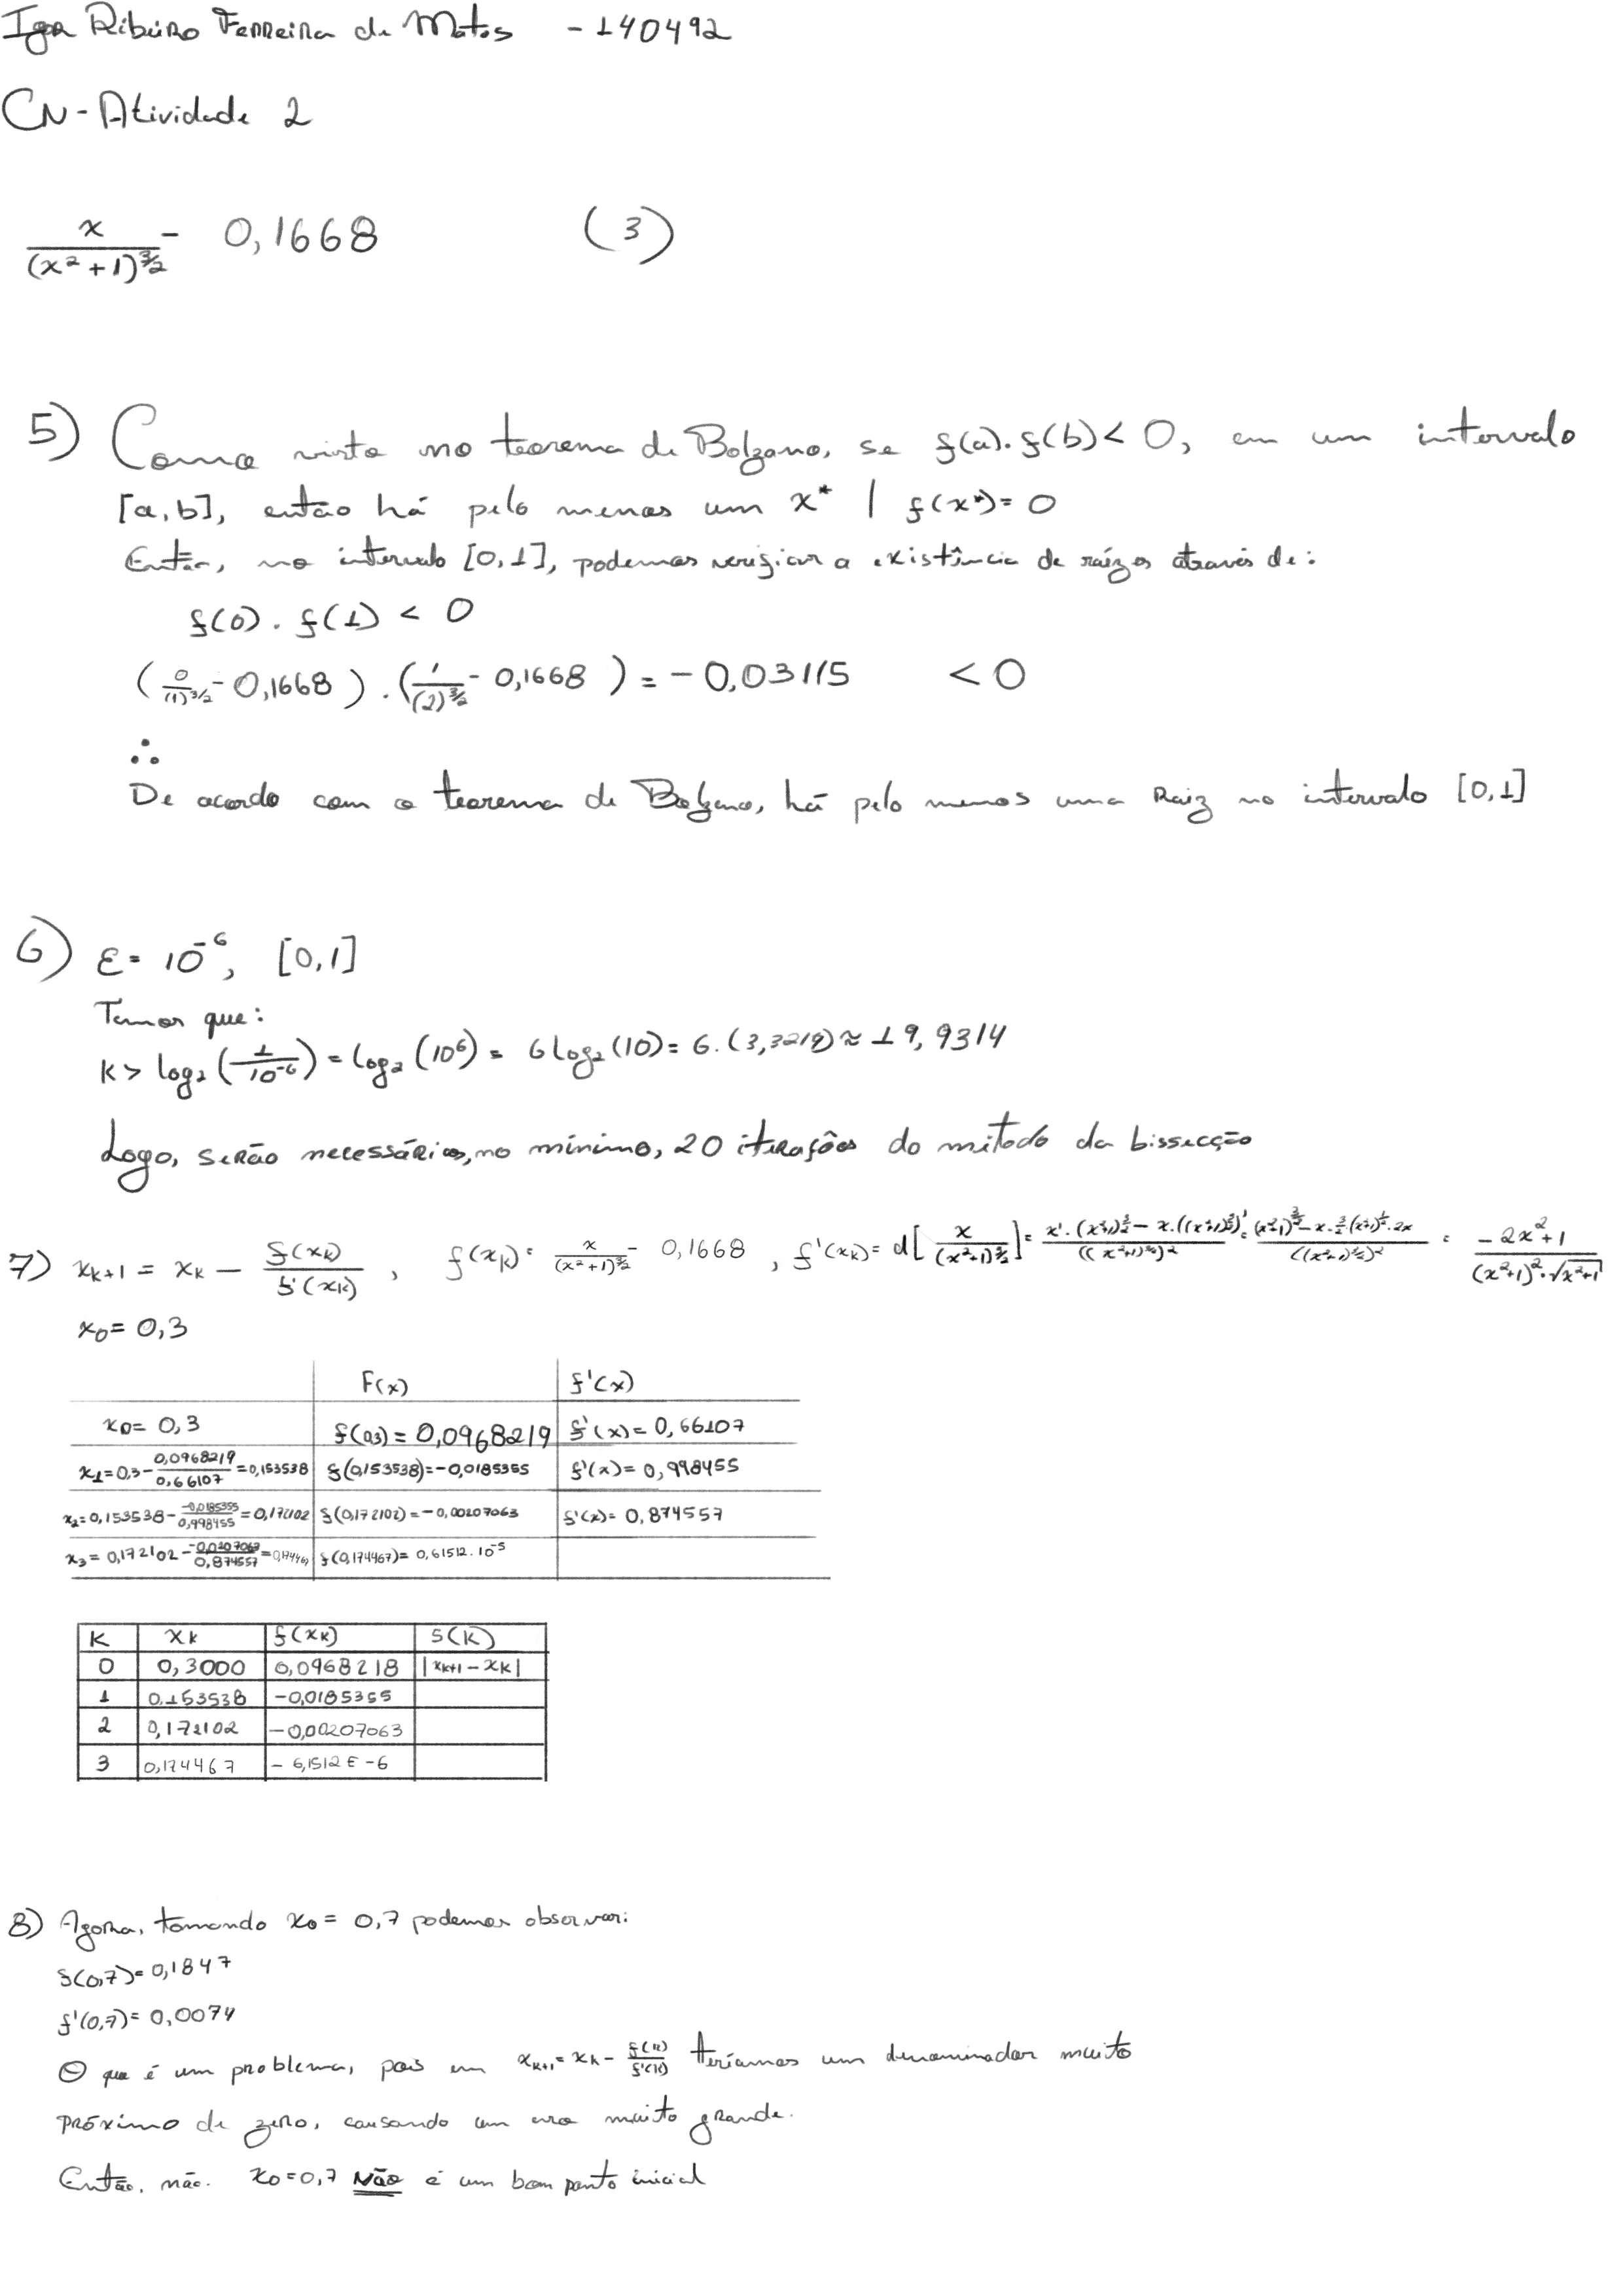 Igor Ribeiro Ferreira de Matos - 140492
CN - Atividade 2
x/(x² + 1)^3/2 - 0,1668 (3)
5) Como visto no teorema de Bolzano, se f(a).f(b) < 0, em um intervalo
[a,b], então há pelo menos um x* | f(x*) = 0
Então, no intervalo [0,1], podemos verificar a existência de raízes através de:
f(0) . f(1) < 0
(0/(1)^3/2 - 0,1668) . (1/(2)^3/2 - 0,1668) = - 0,03115 < 0
∴
De acordo com o teorema de Bolzano, há pelo menos uma Raiz no intervalo [0,1]
6) ε = 10^-6, [0,1]
Temos que:
K > log₂(1/10^-6) = log₂(10^6) = 6 log₂(10) = 6.(3,3219) ≈ 19,9314
Logo, serão necessários, no mínimo, 20 iterações do método da bissecção
7) x_k+1 = x_k - f(x_k)/f'(x_k), f(x_k) = x/(x²+1)^3/2 - 0,1668, f'(x_k) = d[x/(x²+1)^3/2] = x'.(x²+1)^3/2 - x.((x²+1)^3/2)'/((x²+1)^3/2)² = (x²+1)^3/2 - x.3/2(x²+1)^1/2.2x/((x²+1)^3/2)² = -2x²+1/(x²+1)².√x²+1
x₀ = 0,3
F(x) f'(x)
x₀ = 0,3 f(0,3) = 0,0968219 f'(x) = 0,66107
x₁ = 0,3 - 0,0968219/0,66107 = 0,153538 f(0,153538) = -0,0185355 f'(x) = 0,998455
x₂ = 0,153538 - -0,0185355/0,998455 = 0,172102 f(0,172102) = -0,00207063 f'(x) = 0,874557
x₃ = 0,172102 - -0,0207063/0,874557 = f(0,174467) = 0,61512.10^-5
K xk f(xk) s(k)
0 0,3000 0,0968218 |xk+1 - xk|
1 0,153538 -0,0185355
2 0,172102 -0,00207063
3 0,174467 - 6,1512 E -6
8) Agora, tomando x₀ = 0,7 podemos observar:
f(0,7) = 0,1847
f'(0,7) = 0,0074
O que é um problema, pois em x_k+1 = x_k - f(k)/f'(k) teríamos um denominador muito
próximo de zero, causando um erro muito grande.
Então, não. x₀ = 0,7 Não é um bom ponto inicial